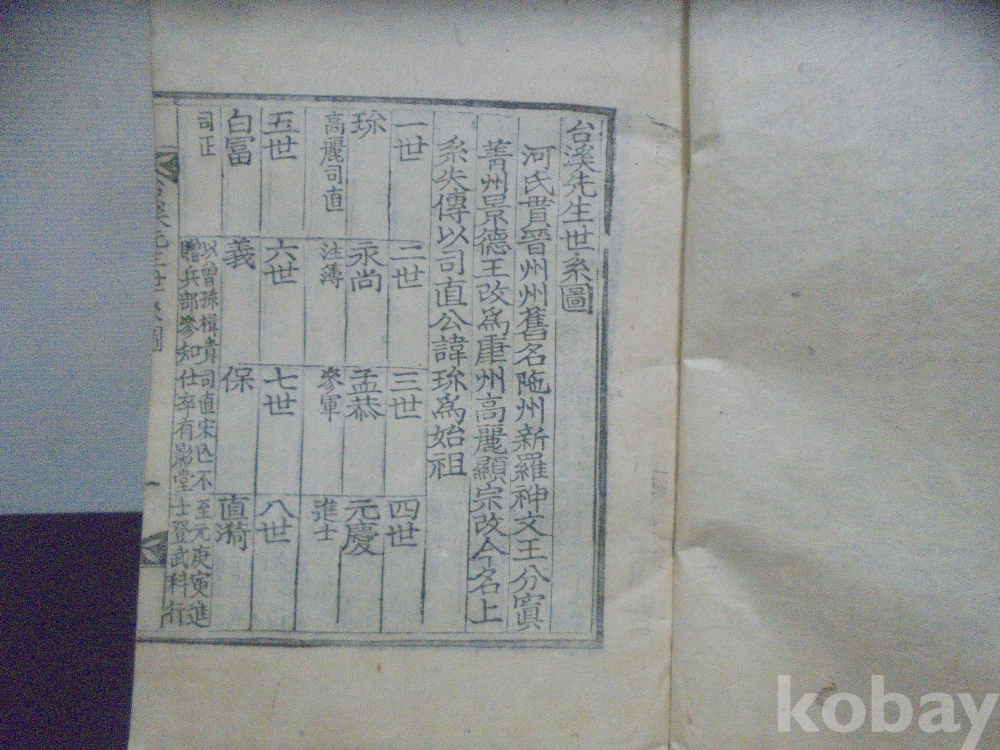 台溪先生世系圖
河氏貫晉州州舊名陁州新羅神文王分寘
菁州景德王改爲康州高麗顯宗改今名上
系失傳以司直公諱珎爲始祖
一世
二世
三世
四世
珎
永尚
孟恭
元慶
高麗司直
注簿
參軍
進士
五世
六世
七世
八世
白富
義
保
直漪
司正
以曾孫楫貴
贈兵部參知
司直宋亾不
仕卒有影堂
至元庚寅進
士登武科行
先生世系圖
kobay